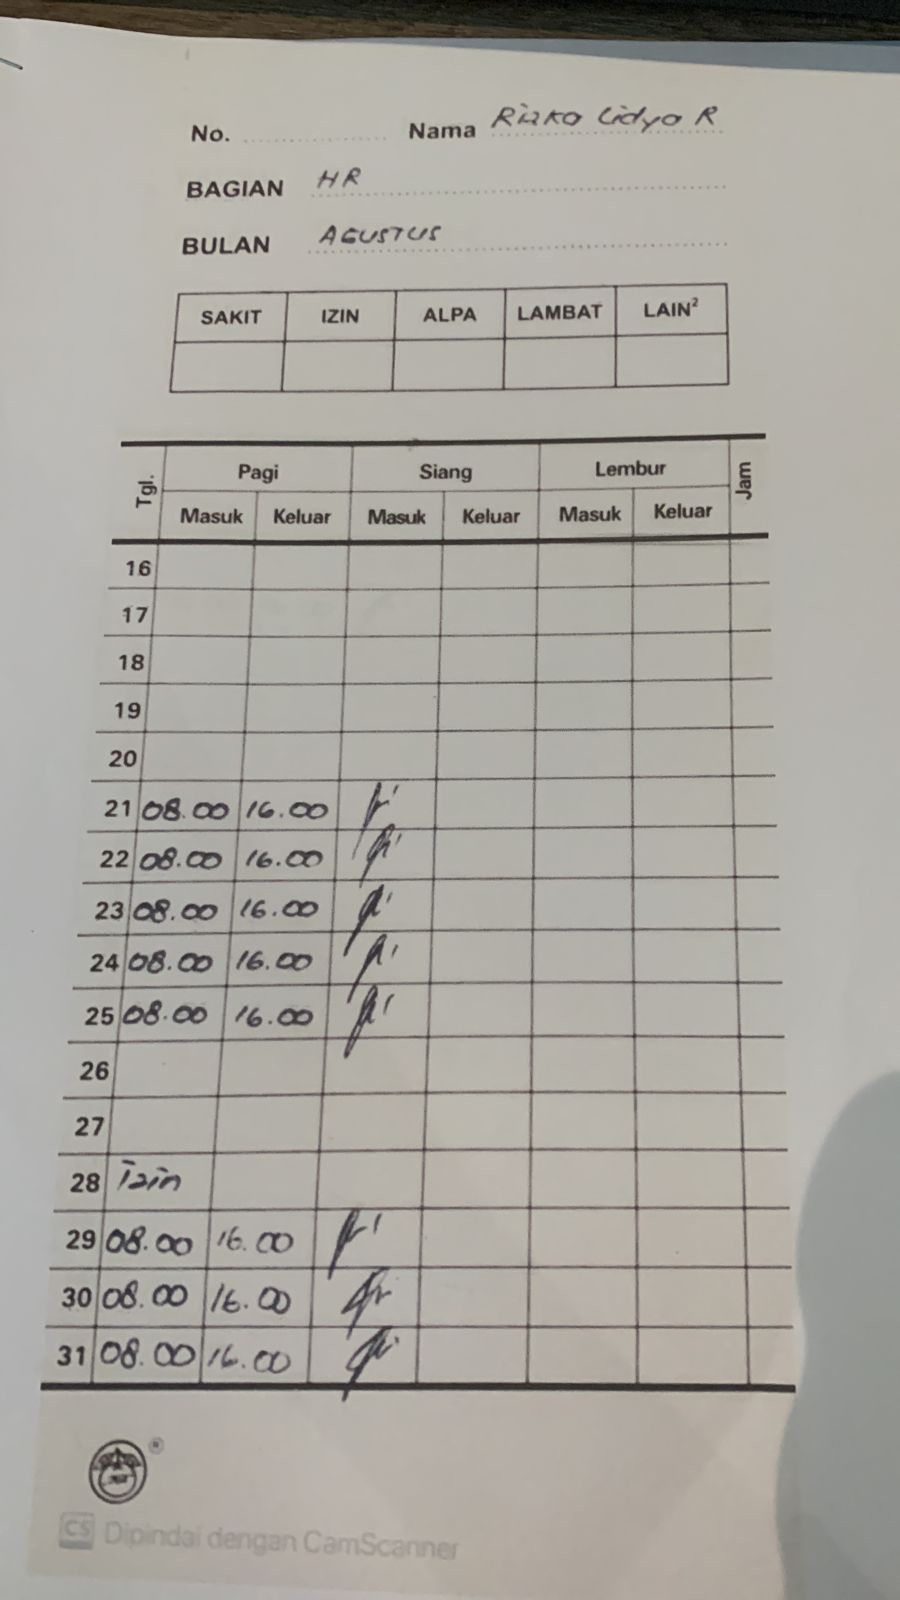 No. Nama Rizka Lidya R
BAGIAN HR
BULAN AGUSTUS
SAKIT IZIN ALPA LAMBAT LAIN²
Tgl. Pagi Siang Lembur Jam
Masuk Keluar Masuk Keluar Masuk Keluar
16
17
18
19
20
21 08.00 16.00
22 08.00 16.00
23 08.00 16.00
24 08.00 16.00
25 08.00 16.00
26
27
28 Izin
29 08.00 16.00
30 08.00 16.00
31 08.00 16.00
®
CS Dipindai dengan CamScanner